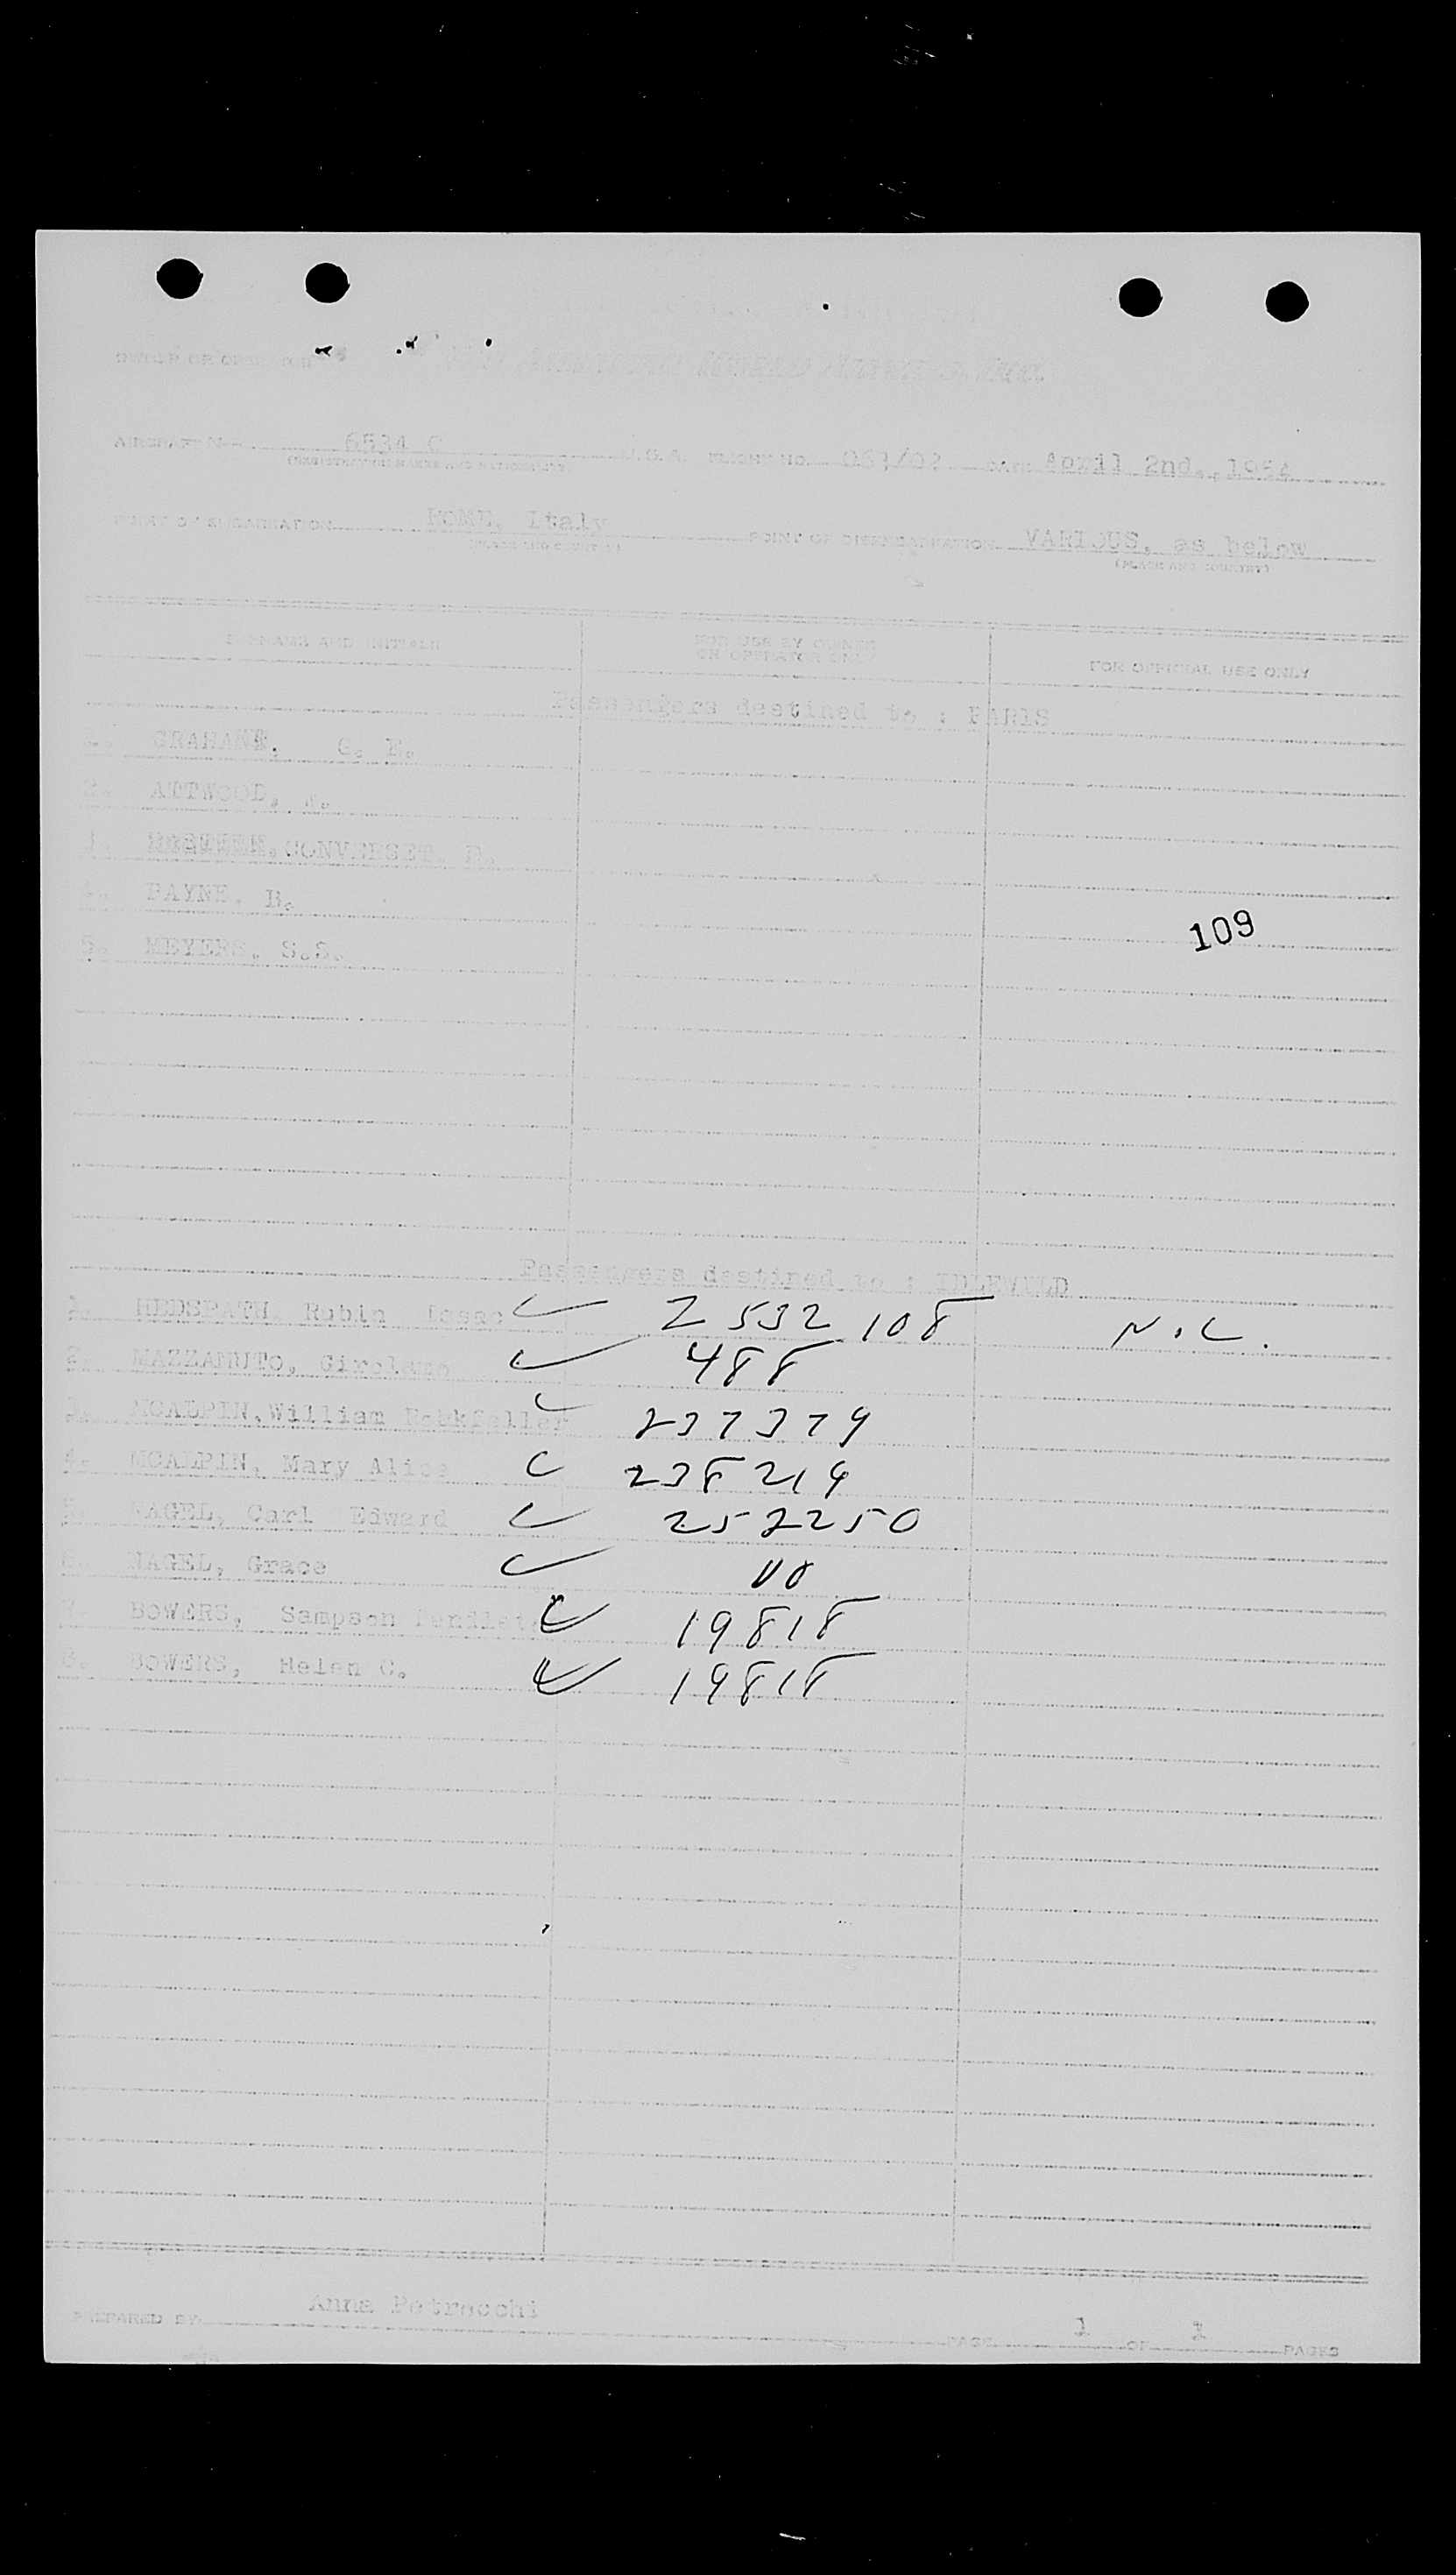 OWNER OR OPERATOR PAN AMERICAN WORLD AIRWAYS, INC.
AIRCRAFT 6534 C U.S.A. FLIGHT NO. DATE April 2nd., 1954
(REGISTRATION MARKS AND NATIONALITY)
POINT OF EMBARKATION ROME, Italy POINT OF DISEMBARKATION VARIOUS, as below
(PLACE AND COUNTRY) (PLACE AND COUNTRY)
SURNAME AND INITIALS FOR USE BY OWNER OR OPERATOR ONLY FOR OFFICIAL USE ONLY
Passengers destined to : PARIS
1. G. E.
2. ATTWOOD,
3. CONVERSET,
4. PAYNE, B.
109
5. MEYERS, S.S.
Passengers destined to : IDLEWILD
1. HEDSPATH, Rubin Isaac 2532108 N.C.
2. MAZZAMUTO, Girolamo 488
3. MCALPIN, William Rockfeller 237379
4. MCALPIN, Mary Alice 238219
5. NAGEL, Carl Edward 252250
6. NAGEL, Grace
7. BOWERS, Sampson 19818
8. BOWERS, Helen C. 19818
PREPARED BY Anna Petrocchi
PAGE 1 OF 1 PAGES